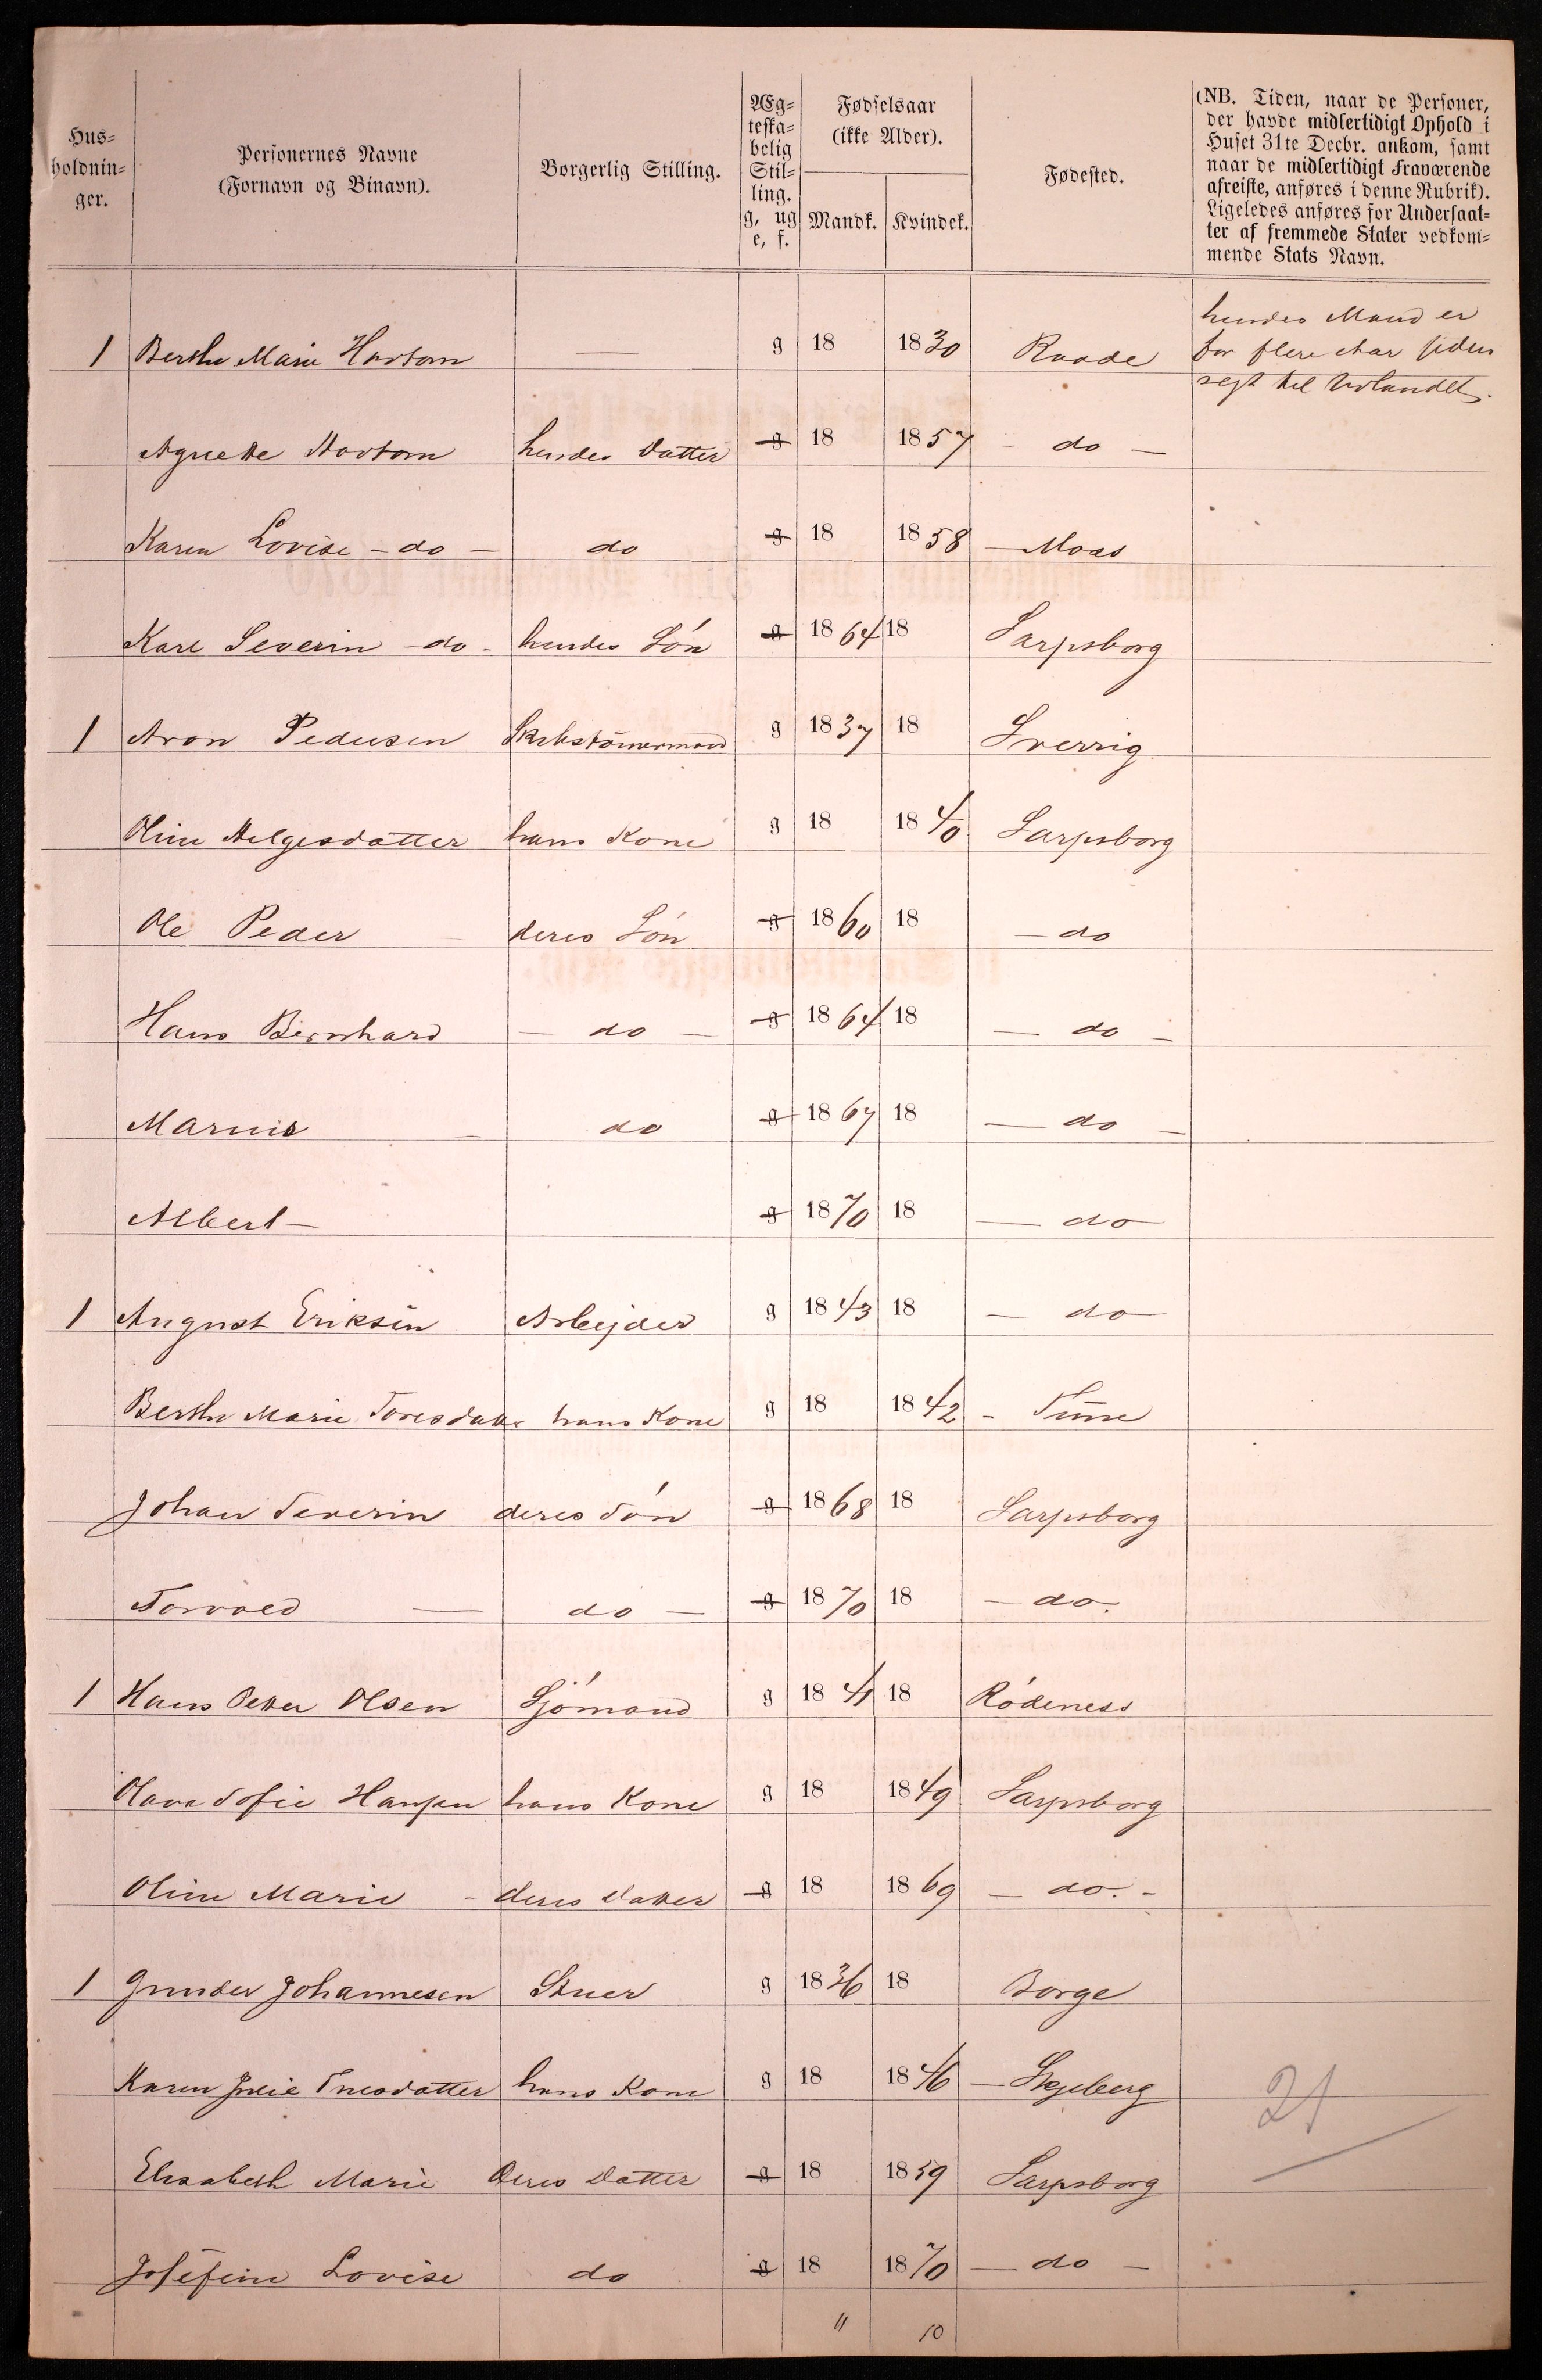 Hus=
holdnin=
ger.
Personernes Navne
(Fornavn og Binavn).
Borgerlig Stilling.
Æg=
teska=
belig
Stil=
ling.
g, ug
e, f.
Fødselsaar
(ikke Alder).
Mandk. Kvindek.
Fødested.
(NB. Tiden, naar de Personer,
der havde midlertidigt Ophold i
Huset 31te Decbr. ankom, samt
naar de midlertidigt Fraværende
afreiste, anføres i denne Rubrik).
Ligeledes anføres for Undersaat=
ter af fremmede Stater vedkom=
mende Stats Navn.
hendes Mand er
for flere Aar siden
rejst til Udlandet.
1 Berthe Marie Havtorn — g 18 1830 Raade
Agnette Havtorn hendes Datter g 18 1857 - do -
Karen Lovise - do - do g 18 1858 - Moss
Karl Severin - do - hendes Sön g 1864 18 Sarpsborg
1 Aron Pedersen Skibstömermand g 1837 18 Sverrig
Oline Helgesdatter hans Kone g 18 1840 Sarpsborg
Ole Peder deres Sön g 1860 18 - do
Hans Bernhard - do - g 1864 18 - do -
Marius - do g 1867 18 - do -
Albert - g 1870 18 - do -
1 August Eriksen Arbejder g 1843 18 - do -
Berthe Marie Toresdatter hans Kone g 18 1842 - Tune
Johan Severin deres Sön g 1868 18 Sarpsborg
Torvald - do - g 1870 18 - do.
1 Hans Petter Olsen Sjömand g 1841 18 Rödeness
Olava Sofie Hansen hans Kone g 18 1849 Sarpsborg
Oline Marie - deres Datter g 18 1869 - do. -
1 Gunder Johannesen Stuer g 1836 18 Borge
Karen Julie hans Kone g 18 1846 - Skjeberg
21
Elisabeth Marie Deres Datter g 18 1859 Sarpsborg
Josefine Lovise do g 18 1870 - do -
11 10